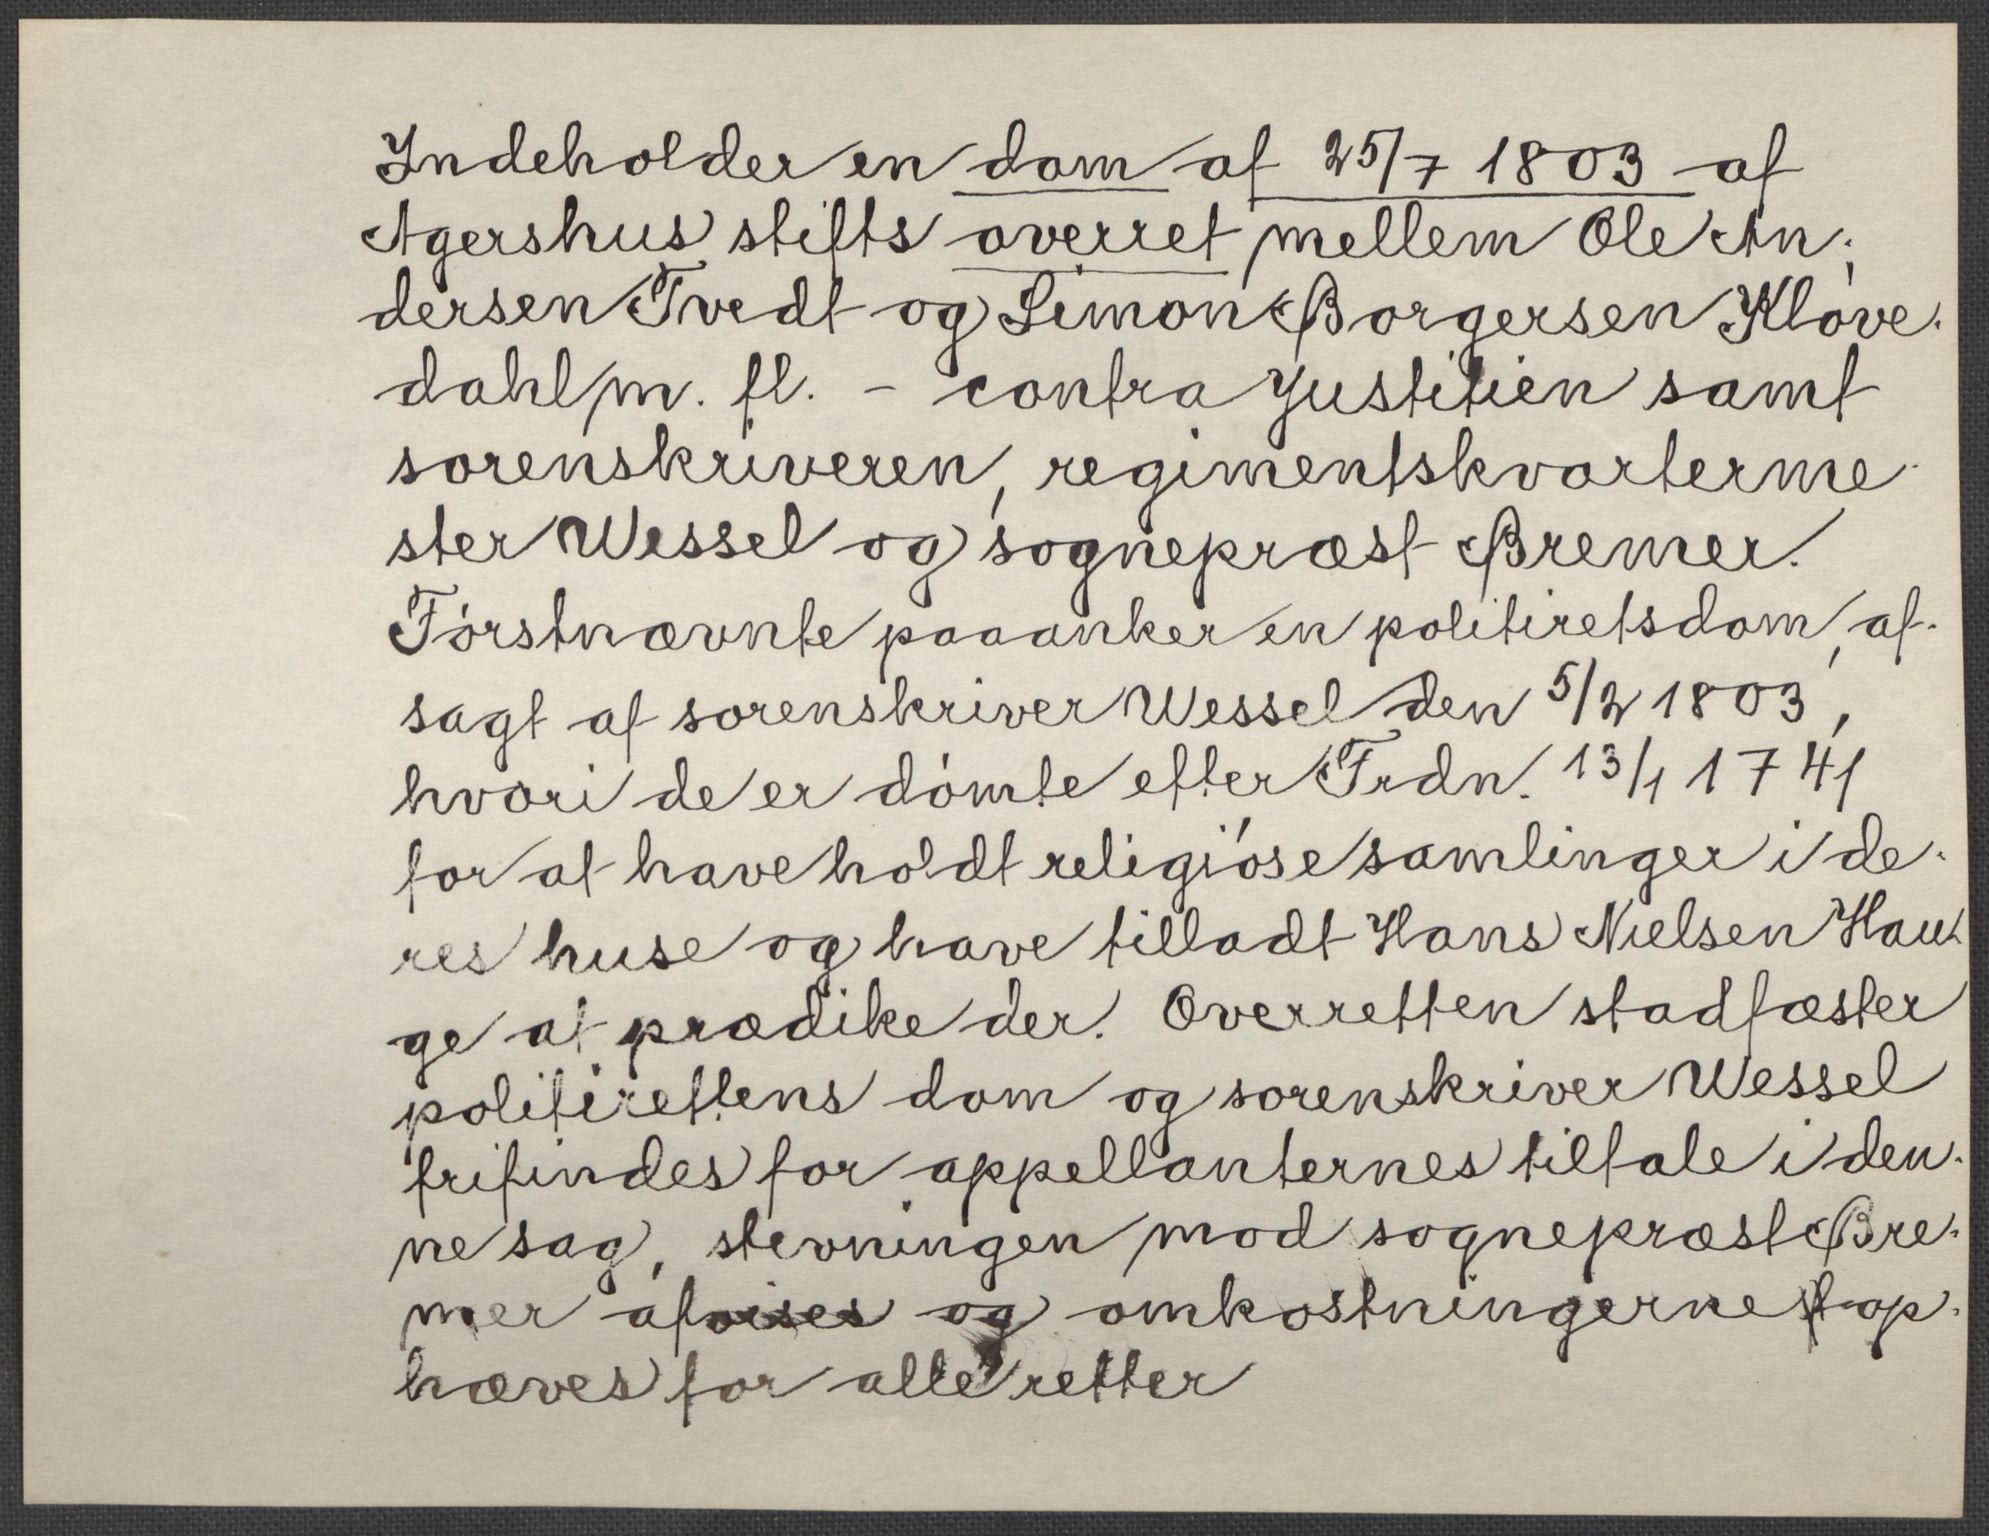 Indeholder en dom af 25/7 1803 af
Agershus stifts overret mellem Ole An-
dersen Tvedt og Simon Borgersen Kløve-
dahl m. fl. - contra Justitien samt
sorenskriveren, regimentskvarterme-
ster Wessel og sognepræst Bremer.
Førstnævnte paaanker en politiretsdom, af-
sagt af sorenskriver Wessel den 5/2 1803,
hvori de er dømte efter Frdn. 13/1 1741
for at have holdt religiøse samlinger i de-
res huse og have tilladt Hans Nielsen Hau-
ge at prædike der. Overretten stadfæster
politirettens dom og sorenskriver Wessel
frifindes for appellanternes tiltale i den-
ne sag, stevningen mod sognepræst Bre-
mer afvises og omkostningerne op-
hæves for alle retter